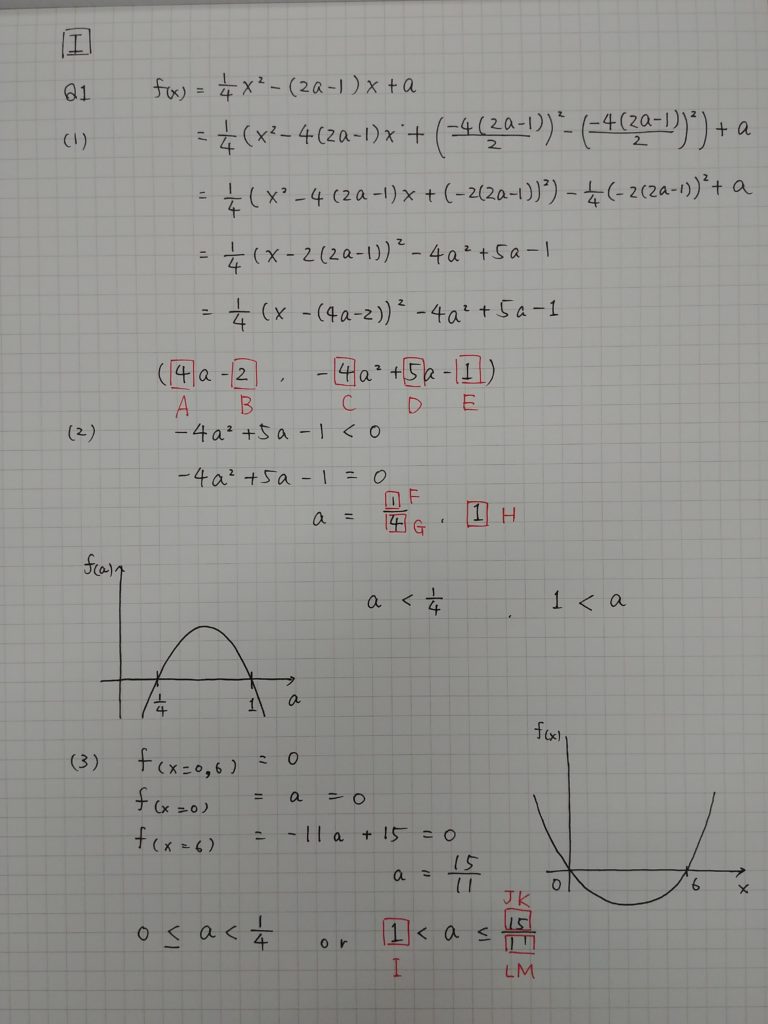 I
Q1 f(x) = 1/4 x² - (2a-1)x + a
(1) = 1/4 (x² - 4(2a-1)x + (-4(2a-1)/2)² - (-4(2a-1)/2)²) + a
= 1/4 (x² - 4(2a-1)x + (-2(2a-1))²) - 1/4 (-2(2a-1))² + a
= 1/4 (x - 2(2a-1))² - 4a² + 5a - 1
= 1/4 (x - (4a-2))² - 4a² + 5a - 1
(4a - 2 , -4a² + 5a - 1)
A B C D E
(2) -4a² + 5a - 1 < 0
-4a² + 5a - 1 = 0
a = 1/4 , 1 H
F
G
f(a)
a < 1/4 , 1 < a
1/4 1 a
f(x)
(3) f(x=0,6) = 0
f(x=0) = a = 0
f(x=6) = -11a + 15 = 0
a = 15/11
0 6 x
JK
0 ≤ a < 1/4 or 1 < a ≤ 15/11
I LM